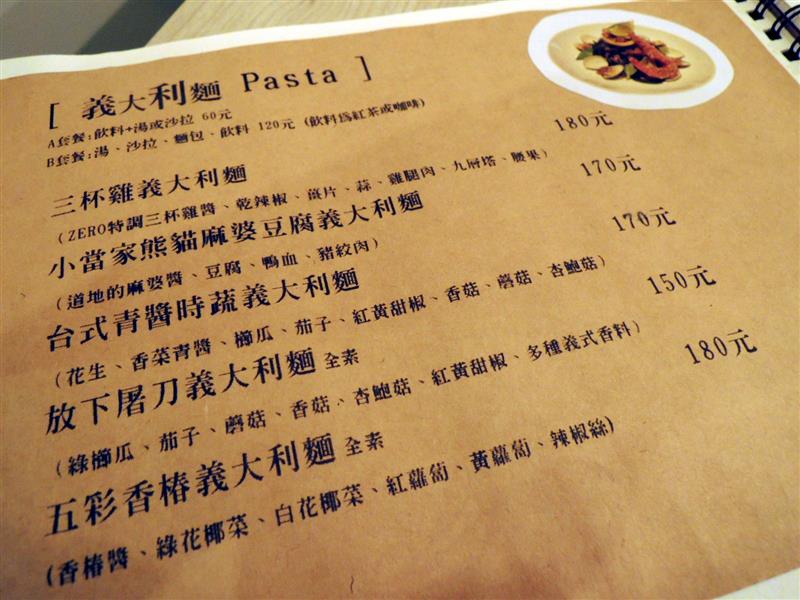 [ 義大利麵 Pasta ]
A套餐:飲料+湯或沙拉 60元
B套餐:湯、沙拉、麵包、飲料 120元 (飲料為紅茶或咖啡)
三杯雞義大利麵 180元
(ZERO特調三杯雞醬、乾辣椒、薑片、蒜、雞腿肉、九層塔、腰果)
小當家熊貓麻婆豆腐義大利麵 170元
(道地的麻婆醬、豆腐、鴨血、豬絞肉)
台式青醬時蔬義大利麵 170元
(花生、香菜青醬、櫛瓜、茄子、紅黃甜椒、香菇、蘑菇、杏鮑菇)
放下屠刀義大利麵 全素 150元
(綠櫛瓜、茄子、蘑菇、香菇、杏鮑菇、紅黃甜椒、多種義式香料)
五彩香椿義大利麵 全素 180元
(香椿醬、綠花椰菜、白花椰菜、紅蘿蔔、黃蘿蔔、辣椒絲)